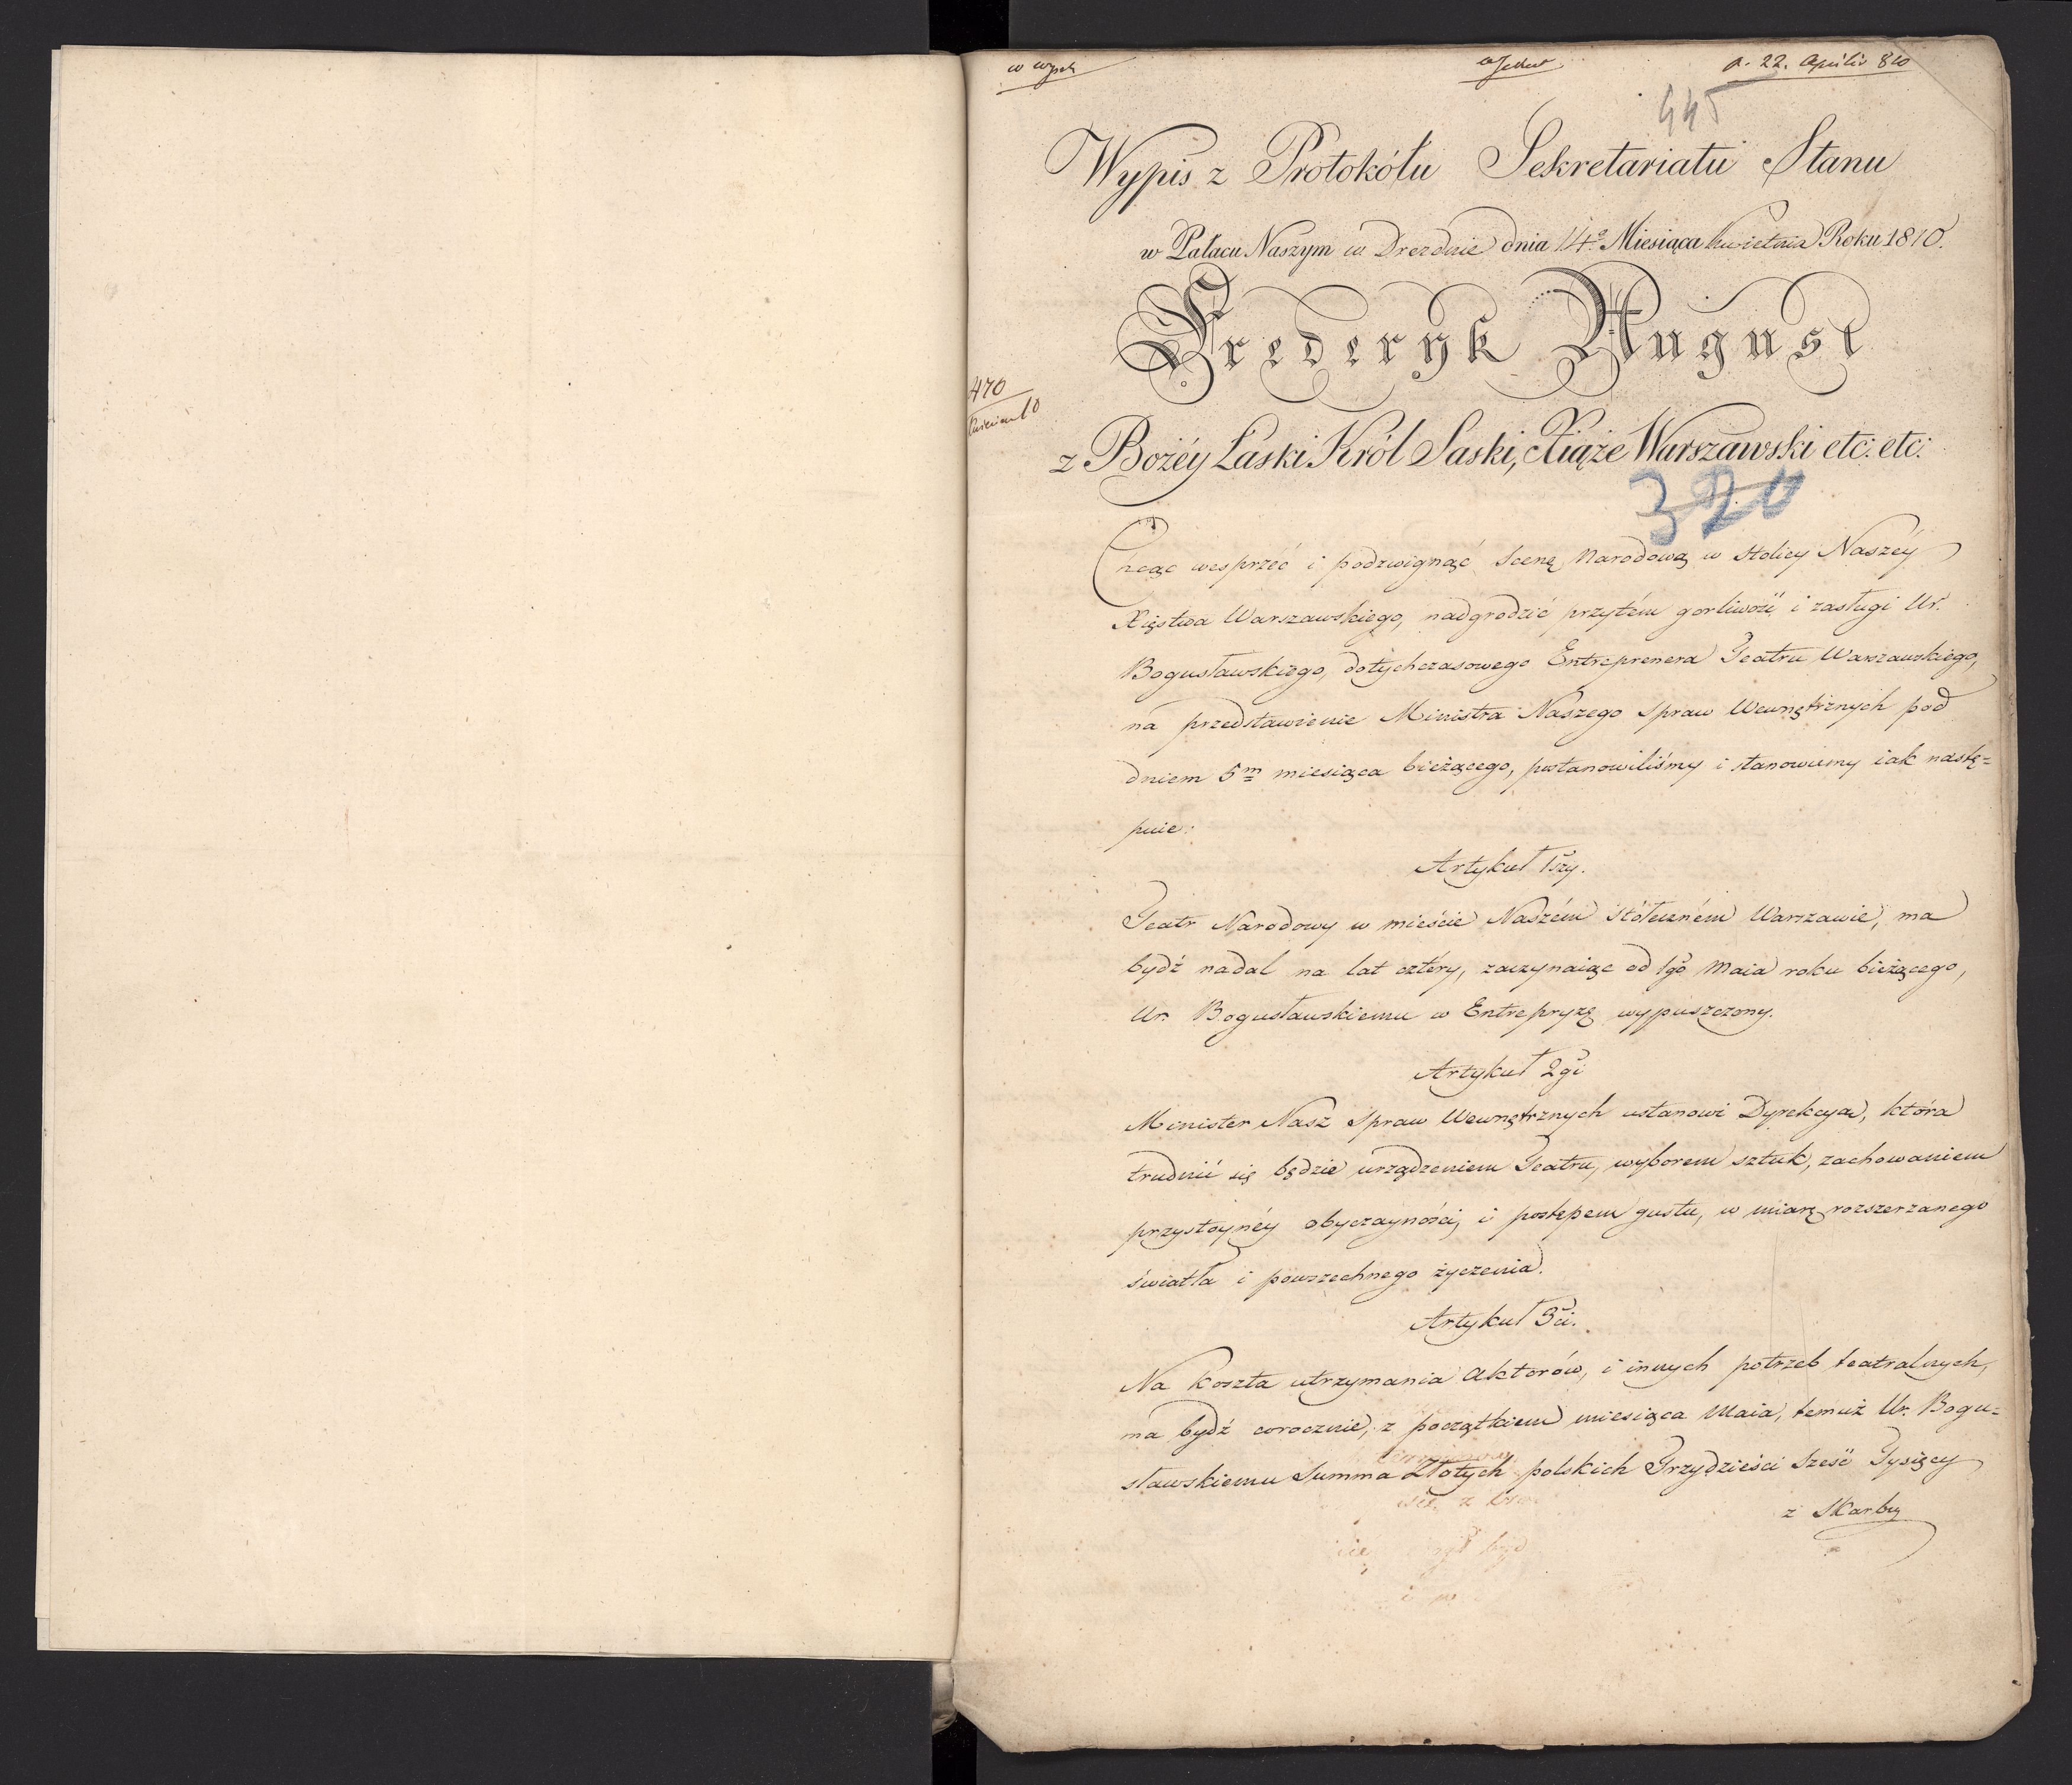 p. 22. Aprilis 810
445
Wypis z Protokółu Sekretariatu Stanu
w Pałacu Naszym w Dreznie dnia 14º Miesiąca kwietnia Roku 1810.
Frederyk August
470
z Bożéy Łaski Król Saski, Xiąże Warszawski etc: etc:
320
Chcąc wesprzéć i podzwignąć Scenę Narodową w stolicy Naszéy
Xięstwa Warszawskiego, nadgrodzić przytém gorliwość i zasługi Ur.
Bogusławskiego, dotychczasowego Entreprenera Teatru Warszawskiego,
na przedstawienie Ministra Naszego Spraw Wewnętrznych pod
dniem 5m miesiąca bieżącego, postanowiliśmy i stanowiemy iak nastę=
pnie:
Artykuł 1szy.
Teatr Narodowy w mieście Naszém stółeczném Warszawie, ma
bydź nadal na lat cztéry, zaczynaiąc od 1go Maia roku bieżącego,
Ur. Bogusławskiemu w Entrepryzę wypuszczony.
Artykuł 2gi
Minister Nasz Spraw Wewnętrznych ustanowi Dyrekcyą, która
trudnić się będzie urządzeniem Teatru, wyborem sztuk, zachowaniem
przystoynéy obyczayności, i postępem gustu, w miarę rozszerzanego
światła i powszechnego życzenia.
Artykuł 3ci.
Na koszta utrzymania Aktorów, i innych potrzeb teatralnych,
ma bydź corocznie, z początkiem miesiąca Maia, temuż Ur. Bogu=
sławskiemu Summa Złotych polskich Trzydzieści Sześć Tysięcy
z Skarbu